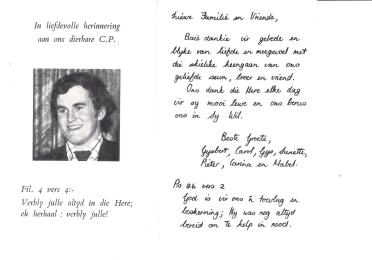 In liefdevolle herinnering
aan ons dierbare C.P.
Fil. 4 vers 4:-
Verbly julle altyd in die Here;
ek herhaal : verbly julle!
Liewe Familie en Vriende,
Baie dankie vir gebede en
blyke van liefde en meegevoel met
die skielike heengaan van ons
geliefde seun, broer en vriend.
Ons dank die Here elke dag
vir sy mooi lewe en ons berus
ons in Sy Wil.
Beste Groete,
Gysbert, Carol, Gys, Lunette,
Pieter, Carina en Mabel.
Ps 46 vers 2
God is vir ons 'n toevlug en
beskerming; Hy was nog altyd
bereid om te help in nood.